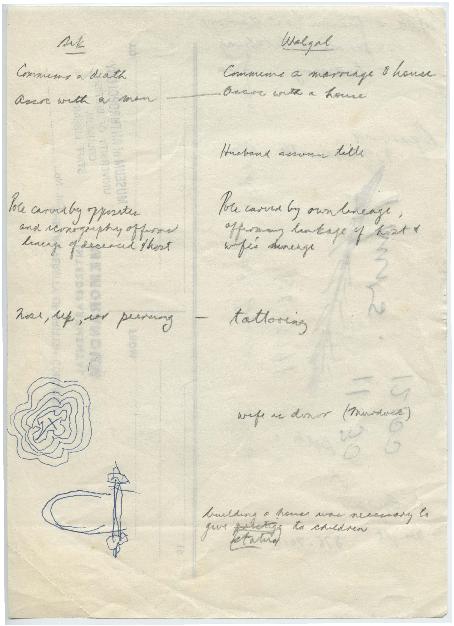 Sik
Walgal
Commems a death
Commems a marriage & house
Assoc with a man — Assoc with a house
Husband assumes title
Pole carved by opposites
and iconography affirms
lineage of deceased & host
Pole carved by own lineage,
affirming linkage of host &
wife's lineage
nose, lip, ear piercing — tattooing
wife as donor (Murdock)
building a house was necessary to
give prestige to children
status